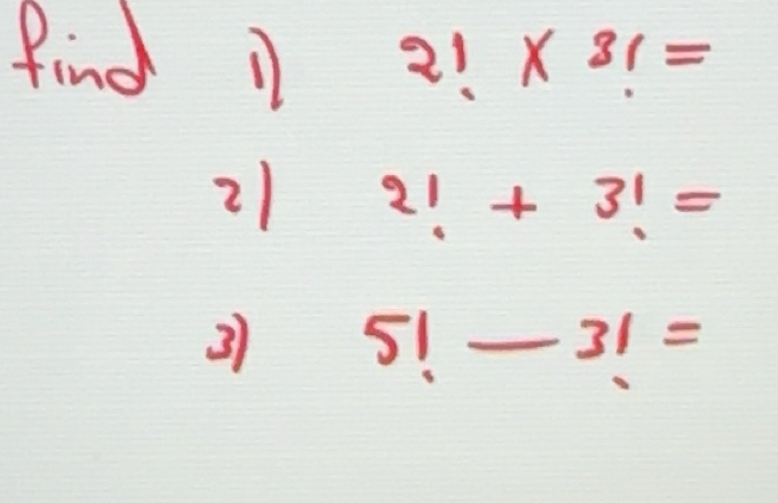 find 1) 2! X 3! =
2) 2! + 3! =
3) 5! — 3! =